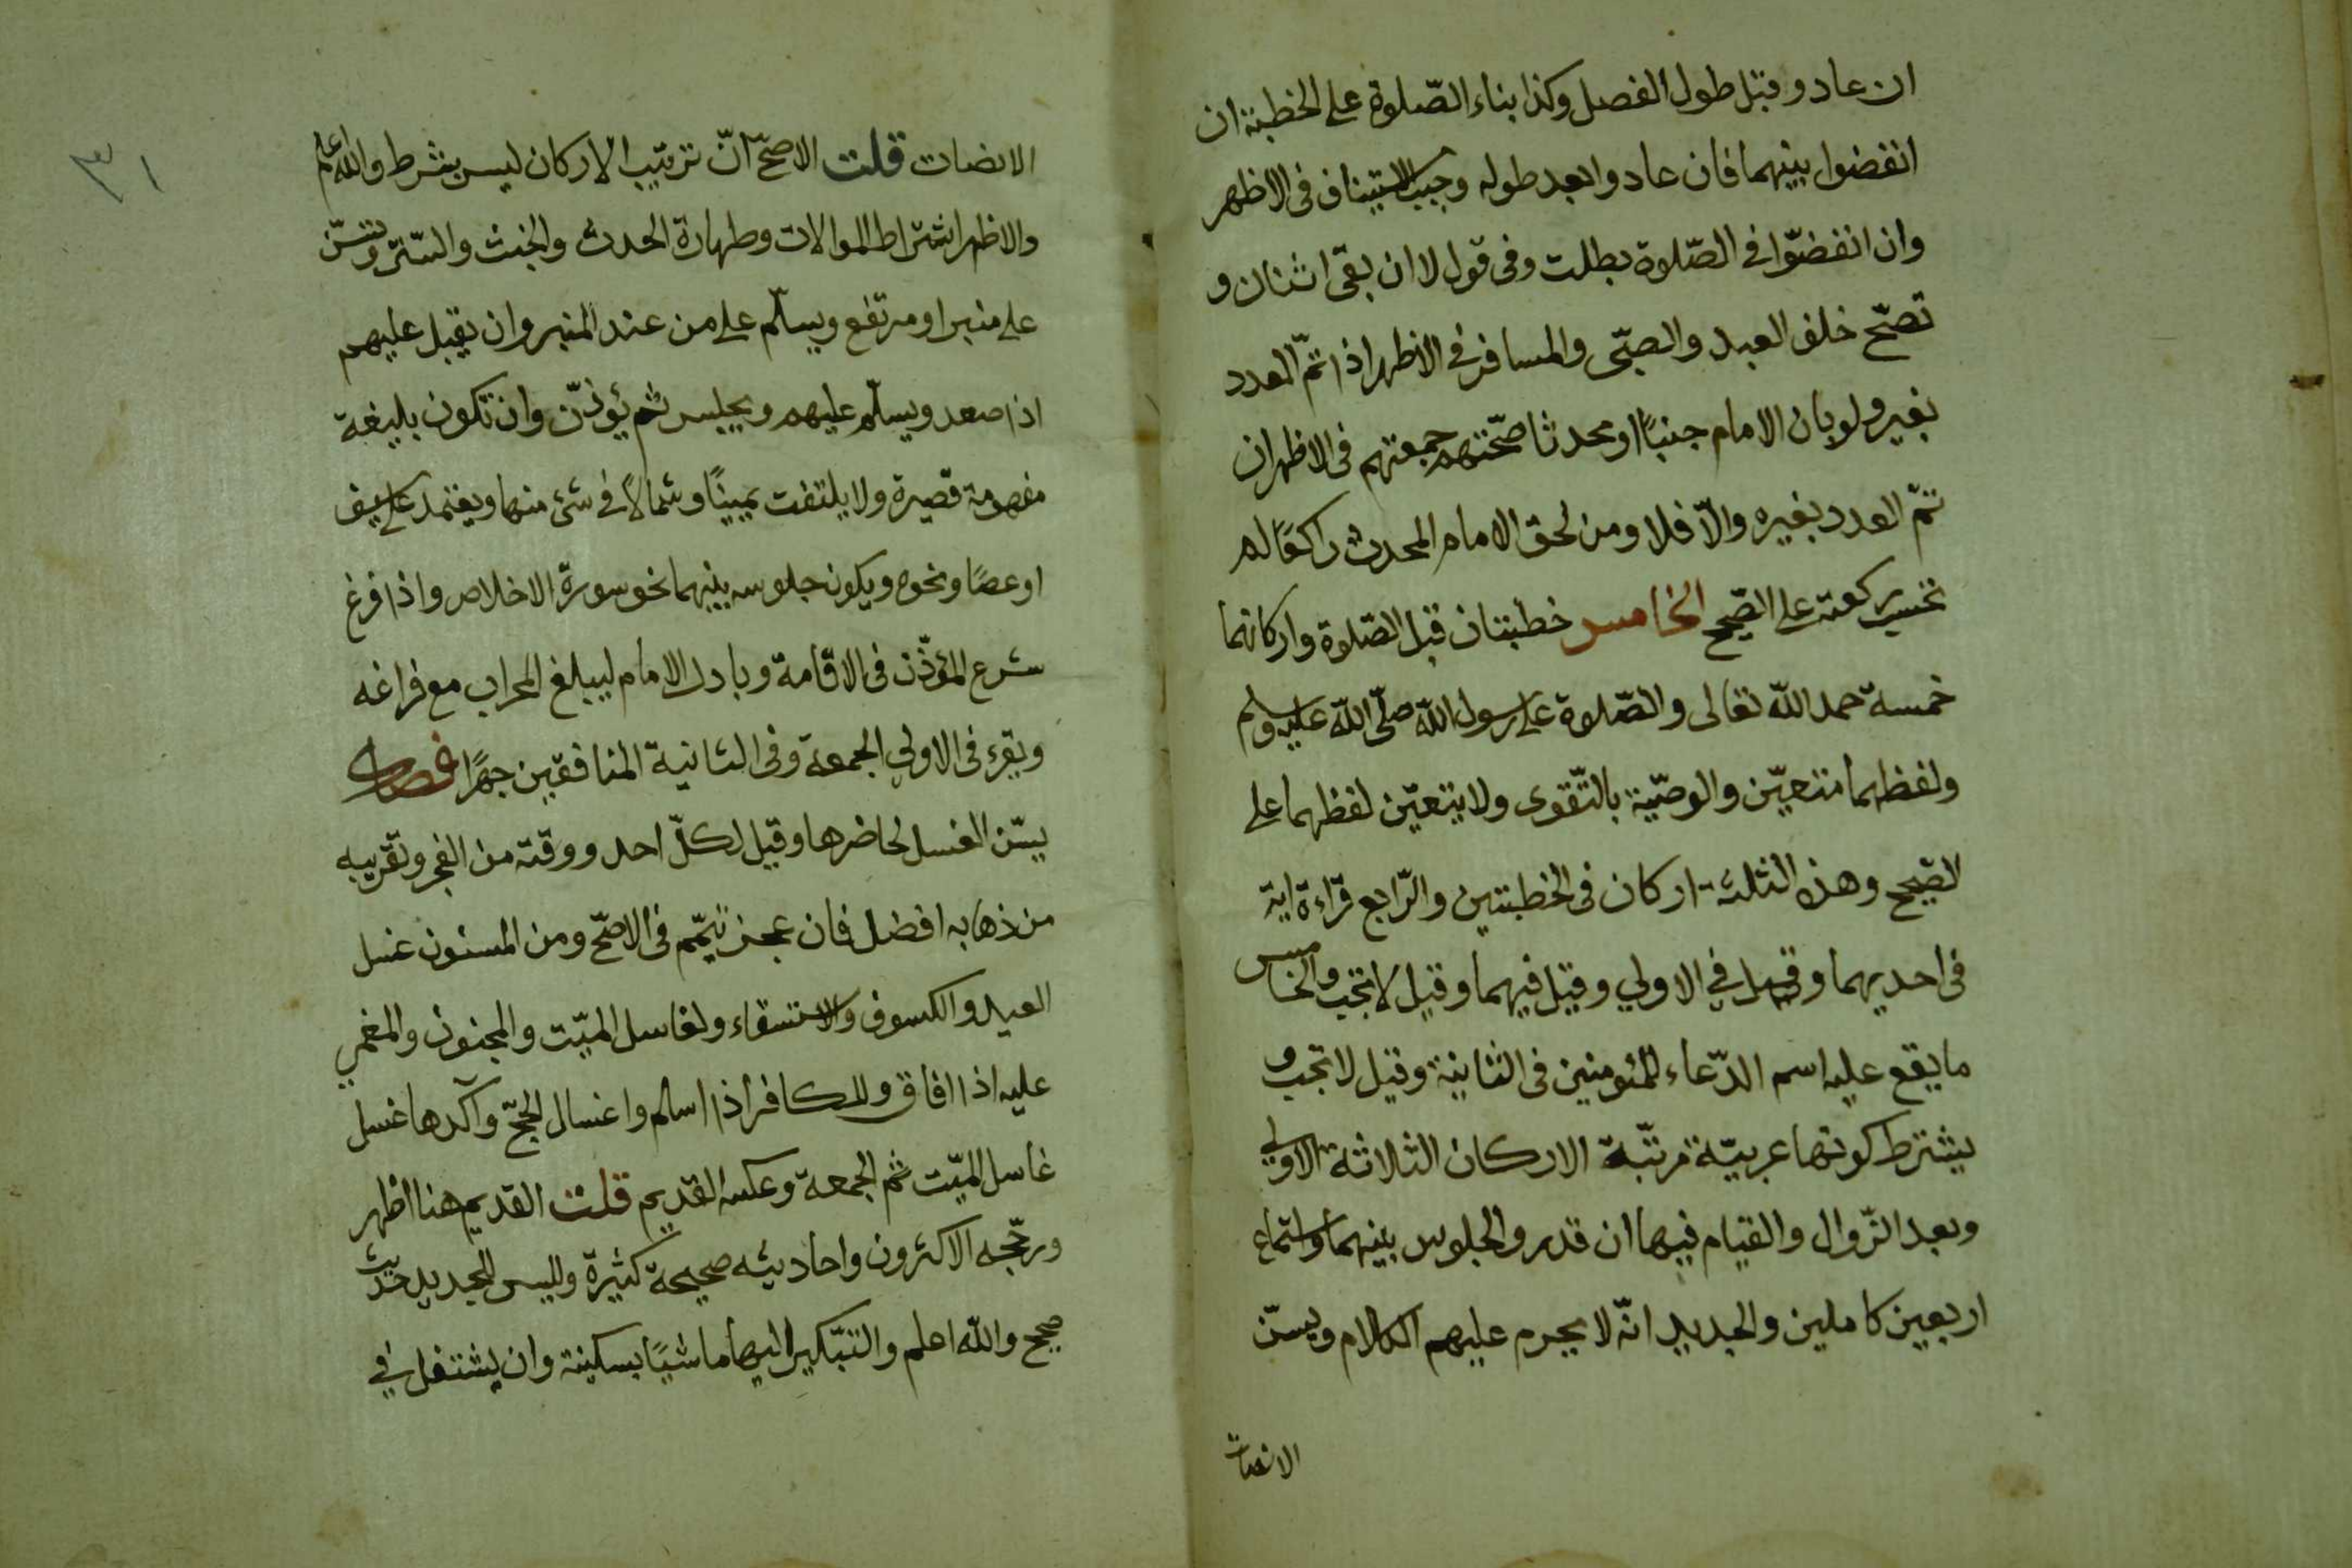 ان عاد و قبل طول الفصل وكذا بناء الصّلوة على الخطبة ان
انفضوا بينهما فان عاد وابعد طوله وجب الاستيناف فى الاظهر
وان انفضّوا فى الصّلوة بطلت وفى قول لا ان بقى اثنان و
تصحّ خلف العبد والصبّى والمسافر فى الاظهر اذا تمّ العدد
بغيره ولو بان الامام جنبًا او محدثا صحّت جمعتهم فى الاظهر ان
تمّ العدد بغيره والّا فلا ومن لحق الامام المحدث راكعًا لم
تحسب ركعته على الصّحيح الخامس خطبتان قبل الصّلوة واركانهما
خمسة حمد الله تعالى والصّلوة على رسول الله صلّى الله عليه وسلم
ولفظهما متعيّن والوصّية بالتّقوى ولا يتعيّن لفظهما على
الصّحيح وهذه الثلثة اركان فى الخطبتين والرّابع قراءة اية
فى احديهما وقيل في الاولي وقيل فيهما وقيل لا تجب والخامس
ما يقع عليه اسم الدّعاء للمئومنين فى الثانية وقيل لا تجب و
يشترط كونها عربيّة مرتّبة الاركان الثلاثة الاولي
وبعد الزّوال والقيام فيهما ان قدر والجلوس بينهما واستماع
اربعين كاملين والجديد انّه لا يحرم عليهم الكلام ويسنّ
الانصات
٣١
الانصات قلت الاصحّ انّ ترتيب الاركان ليس بشرط والله اعلم
والاظهر اشتراط الموالات وطهارة الحدث والخبث والسّتر وتسنّ
على منبر او مرتفع ويسلّم على من عند المنبر وان يقبل عليهم
اذا صعد ويسلّم عليهم ويجلس ثم يئوذّن وان تكون بليغة
مفهومة قصيرة ولا يلتفت يمينًا وشمالًا فى شئ منهما ويعتمد على سيف
او عصًا ونحوه ويكون جلوسه بينهما نحو سورة الاخلاص واذا فرغ
شرع المؤذّن فى الاقامة وبادر الامام ليبلغ المحراب مع فراغه
ويقرء فى الاولي الجمعة وفى الثانية المنافقين جهرًا فصل
يسّن الغسل لحاضرها وقيل لكلّ احد ووقته من الفجر وتقريبه
من ذهابه افضل فان عجز تيمّم فى الاصحّ ومن المسنون غسل
العيد والكسوف والاستسقاء ولغاسل الميّت والمجنون والمغمي
عليه اذا افاق وللكافر اذا اسلم واغسال الحجّ وآكدها غسل
غاسل الميّت ثم الجمعة وعكسه القديم قلت القديم هنا اظهر
ورجّحه الاكثرون واحاديثه صحيحة كثيرة وليس للجديد حديث
صحيح والله اعلم والتبّكير اليها ماشيًا بسكينة وان يشتغل في